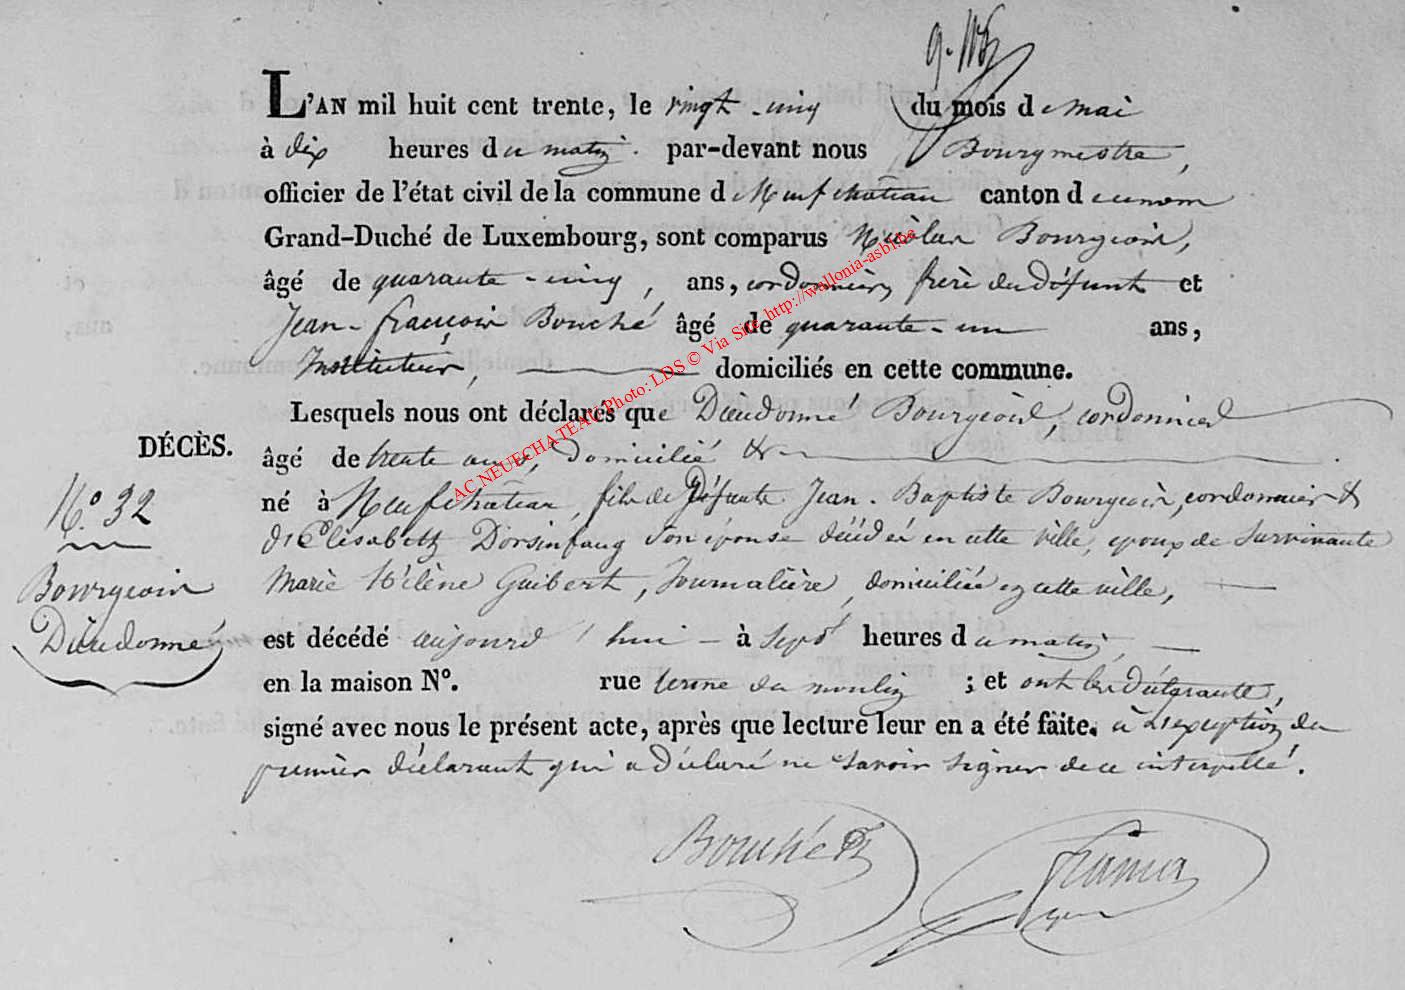 L'AN mil huit cent trente, le vingt-cinq du mois de mai
à dix heures du matin. par-devant nous Bourgmestre,
officier de l'état civil de la commune de Neufchâteau canton du nom
Grand-Duché de Luxembourg, sont comparus Nicolas Bourgeois,
âgé de quarante-cinq, ans, cordonnier, frère du défunt et
Jean-françois Bouché âgé de quarante-un ans,
Instituteur, domiciliés en cette commune.
Lesquels nous ont déclarés que Dieudonné Bourgeois, cordonnier
DÉCÈS.
âgé de trente ans, domicilié &
né à Neufchâteau, fils de défunts Jean-Baptiste Bourgeois, cordonnier &
N.° 32
d'Elisabeth Dorsinfang son épouse décédés en cette ville, époux de survivante
Marie Hélène Guibert, Journalière, domiciliée en cette ville,
Bourgeois
Dieudonné
est décédé aujourd'hui à sept heures du matin,
en la maison N°. rue terme du moulin ; et ont les déclarants,
signé avec nous le présent acte, après que lecture leur en a été faite. à l'exception du
premier déclarant qui a déclaré ne savoir signer de ce interpellé.
Bouché
AC NEUECHATEAU Photo: LDS © Via Site http://wallonia-asbl.be